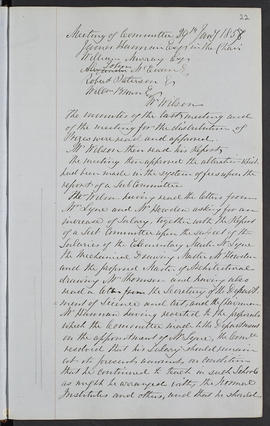 22
Meeting of Committee 29th Jany 1858
James Hannan Esqr in the Chair
William Murray Esqr
John McEwan Esqr
Robert Paterson Esqr
Willm Brown Esqr
Mr Wilson
The minutes of the last meeting and
of the meeting for the distribution of
Prizes were read and approved.
Mr Wilson then read his report
The meeting then approved the alteration which
had been made in the system of fees upon the
report of a Sub Committee
Mr Wilson having read the letters from
Mr Lyne and Mr Heaton asking for an
increase of Salary, together with the Report
of a Sub Committee upon the subject of the
Salaries of the Elementary Master Mr Lyne
the Mechanical Drawing Master Mr Heaton
and the proposed Master of Architectural
drawing Mr Thomson and having also
read a letter from the Secretary of the Depart
ment of Science and Art, and the Chairman
Mr Hannan having reverted to the proposals
which the Committee made to the Department
on the appointment of Mr Lyne, the Comee
resolved that his Salary should remain
as at present, on condition
that he continued to teach in such Schools
as might be arranged with, the Normal
Institutes and others, and that he should